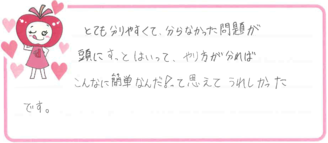 とても分りやすくて、分らなかった問題が
頭にすっとはいって、やり方が分れば
こんなに簡単なんだ!って思えてうれしかった
です。